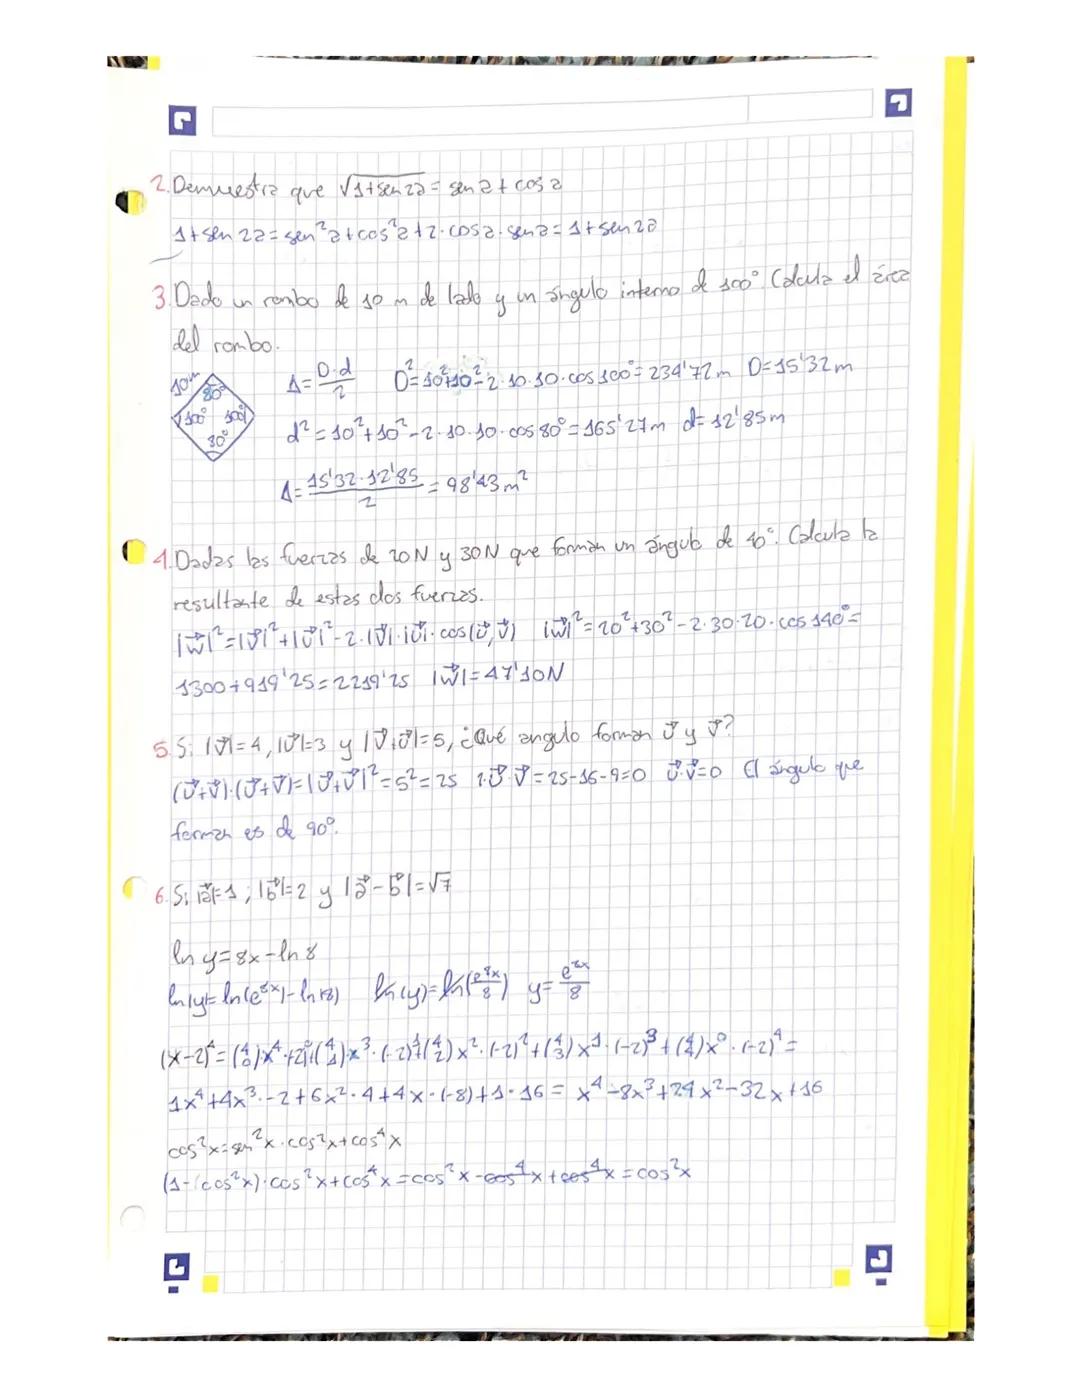 2. Demuestra que √1+sen 2a = sen a + cos a
1+sen 2a = sen²a + cos²a + 2·cos a·sen a = 1+sen 2a
3. Dado un rombo de 10 m de lado y un ángulo interno de 100° Calcula el área
del rombo.
10m
80°
100° 100°
80°
A = D·d/2 D² = 10²+10²-2·10·10·cos 100° = 234'72m D = 15'32m
d² = 10²+10²-2·10·10·cos 80° = 165'27m d = 12'85m
A = 15'32·12'85/2 = 98'43 m²
4. Dadas las fuerzas de 20N y 30N que forman un ángulo de 40°. Calcula la
resultante de estas dos fuerzas.
|w⃗|² = |v⃗|²+|u⃗|²-2·|v⃗|·|u⃗|·cos(u⃗,v⃗) |w⃗|² = 20²+30²-2·30·20·cos 140° =
1300+919'25 = 2219'25 |w⃗| = 47'10N
5. Si |v⃗|=4, |u⃗|=3 y |v⃗+u⃗|=5, ¿Qué angulo forman u⃗ y v⃗?
(u⃗+v⃗)·(u⃗+v⃗) = |u⃗+v⃗|² = 5² = 25 2·u⃗·v⃗ = 25-16-9 = 0 u⃗·v⃗=0 El ángulo que
forman es de 90°.
6. Si |a⃗|=1; |b⃗|=2 y |a⃗-b⃗|=√7
ln y = 8x - ln 8
ln(y) = ln(e^8x) - ln(8) ln(y) = ln(e^8x/8) y = e^8x/8
(x-2)⁴ = (4 0)x⁴·(-2)⁰+(4 1)x³·(-2)¹+(4 2)x²·(-2)²+(4 3)x¹·(-2)³+(4 4)x⁰·(-2)⁴ =
1x⁴+4x³·-2+6x²·4+4x·(-8)+1·16 = x⁴-8x³+24x²-32x+16
cos²x = sen²x·cos²x+cos⁴x
(1-(cos²x)·cos²x+cos⁴x = cos²x-cos⁴x+cos⁴x = cos²x